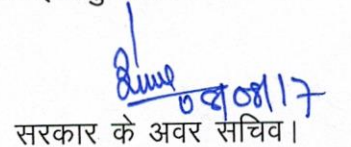 08/08/17
सरकार के अवर सचिव।